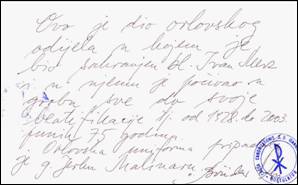 Ovo je dio orlovskog
odijela u kojem je
bio sahranjen bl. Ivan Merz
i u njemu je počivao u
grobu sve do svoje
beatifikacije tj. od 1928. do 2003.
punih 75 godina.
Orlovska uniforma
je g.